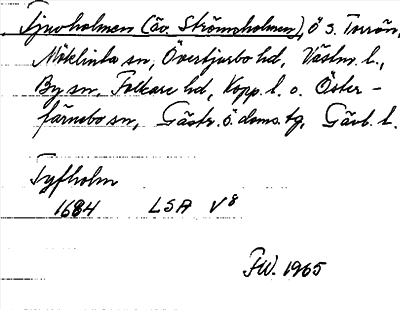 Tjuvholmen (äv. Strömsholmen), Ö s. Torrön,
Möklinta sn, Övertjurbo hd, Västm. l.,
By sn, Folkare hd, Kopp. l. o. Öster-
färnebo sn, Gästr. ö. doms. tg, Gävl. l.
Tyfholm
1684 LSA V8
FW. 1965